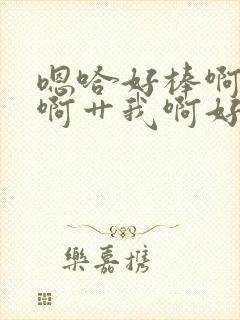 嗯哈好棒啊
啊艹我啊好
樂嘉携